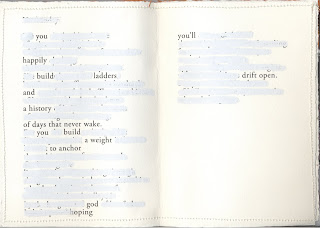 you
happily
build ladders
and
a history
of days that never wake.
you build
a weight
to anchor
god
hoping
you'll
drift open.